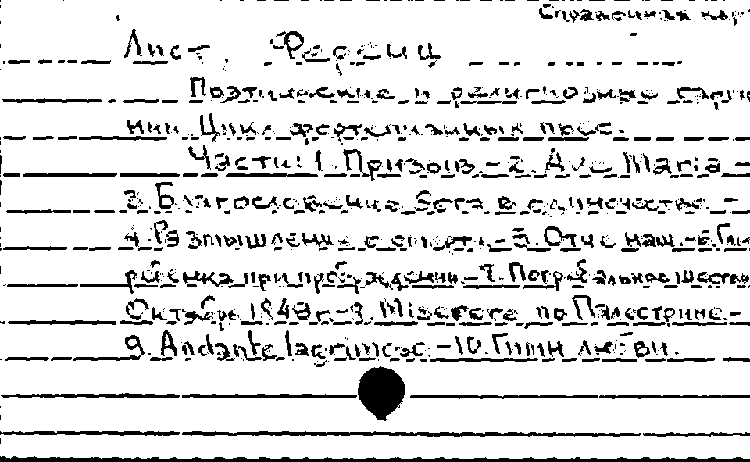 Справочная кар
Лист, Ференц
Поэтические и религиозные гармо
нии. Цикл фортепианных пьес.
Части: 1. Призыв. – 2. Ave Maria –
3. Благословение бога в одиночестве. –
4. Размышление о смерти. – 5. Отче наш. – 6. Гимн
ребенка при пробуждении. – 7. Погребальное шествие
Октябрь 1849 г. – 8. Miserere по Палестрине. –
9. Andante lagrimoso – 10. Гимн любви.